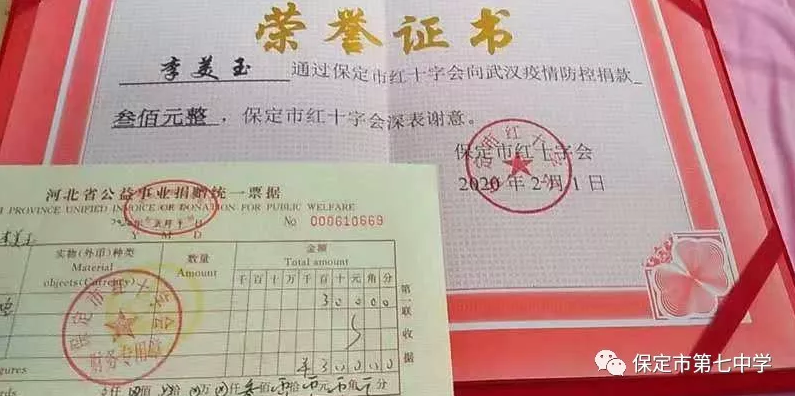 荣誉证书
李美玉 通过保定市红十字会向武汉疫情防控捐款
叁佰元整，保定市红十字会深表谢意。
保定市红十字会
2020年2月1日
河北省公益事业捐赠统一票据
PROVINCE UNIFIED INVOICE OF DONATION FOR PUBLIC WELFARE
No 000610669
Y M D
李美玉
实物(外币)种类
Material
objects(Currency)
数量
Amount
金额
Total amount
千百十万千百十元角分
30000
¥30000
第一联收据
保定市红十字会
财务专用章
保定市第七中学